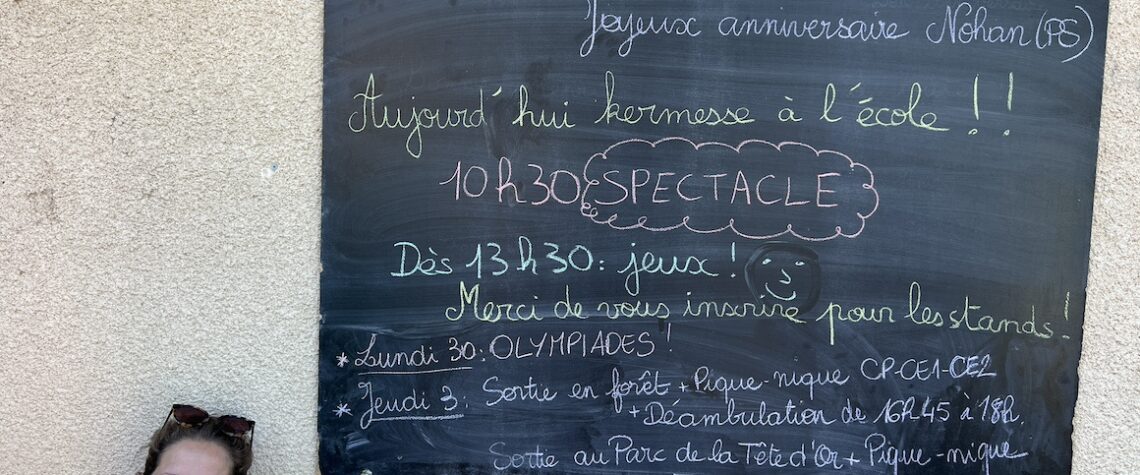 Joyeux anniversaire Nohan (PS)
Aujourd'hui kermesse à l'école !!
10h30 SPECTACLE
Dès 13h30 : jeux !
Merci de vous inscrire pour les stands !
* Lundi 30 : OLYMPIADES !
* Jeudi 3 : Sortie en forêt + Pique-nique CP-CE1-CE2
+ Déambulation de 16h45 à 18h.
Sortie au Parc de la Tête d'Or + Pique-nique